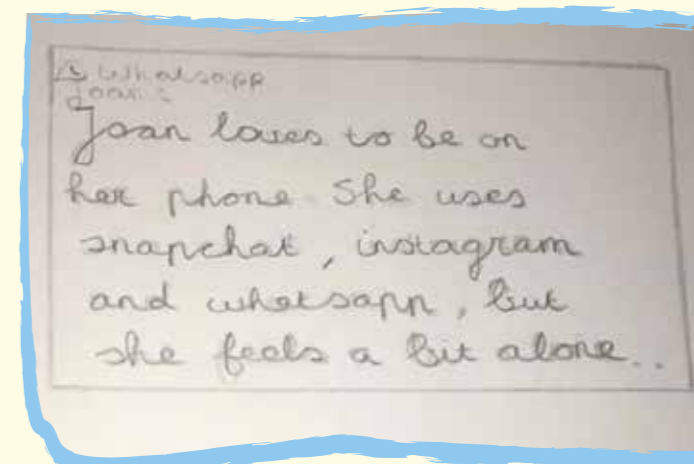 Whatsapp
Joan:
Joan loves to be on
her phone. She uses
snapchat, instagram
and whatsapp, but
she feels a bit alone..